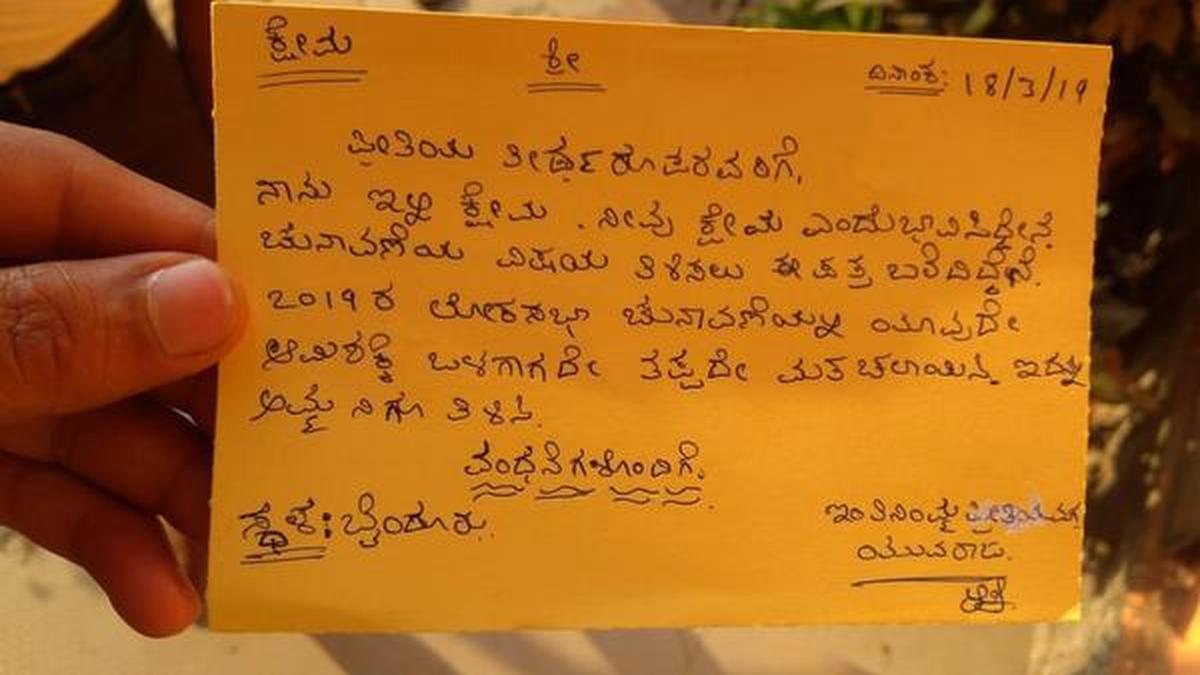 ಕ್ಷೇಮ ಶ್ರೀ ದಿನಾಂಕ: 18/3/19
ಪ್ರೀತಿಯ ತೀರ್ಥರೂಪರವರಿಗೆ,
ನಾನು ಇಲ್ಲಿ ಕ್ಷೇಮ . ನೀವು ಕ್ಷೇಮ ಎಂದುಭಾವಿಸಿದ್ದೇನೆ.
ಚುನಾವಣೆಯ ವಿಷಯ ತಿಳಿಸಲು ಈ ಪತ್ರ ಬರೆದಿದ್ದೇನೆ.
2019ರ ಲೋಕಸಭಾ ಚುನಾವಣೆಯಲ್ಲಿ ಯಾವುದೇ
ಆಮಿಶಕ್ಕೆ ಒಳಗಾಗದೇ ತಪ್ಪದೇ ಮತ ಚಲಾಯಿಸಿ. ಇದನ್ನು
ಅಮ್ಮನಿಗೂ ತಿಳಿಸಿ.
ವಂಧನೆಗಳೊಂದಿಗೆ.
ಸ್ಥಳ: ಬೈಂದೂರು. ಇಂತಿನಿಂಮ್ಮ ಪ್ರೀತಿಯಮಗ
ಯುವರಾಜ.